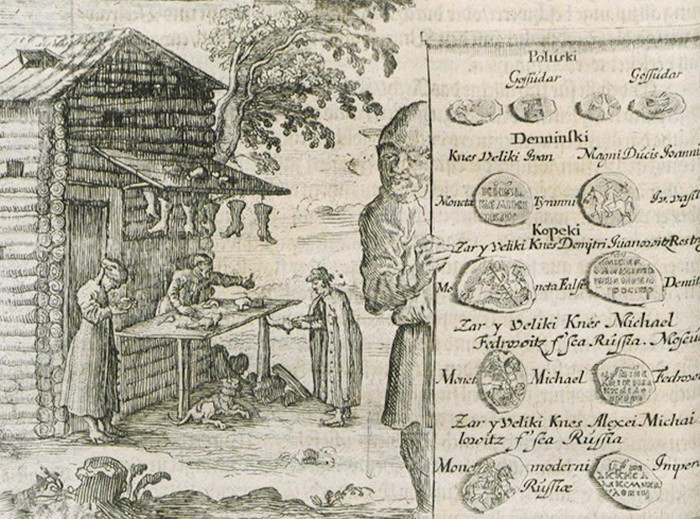 Poluski
Gossudar Gossudar
Denninski
Knes Veliki Ivan Magni Ducis Ioanni
Moneta Tyranni Iv. Vasil
Kopeki
Zar y Veliki Knes Demitri Iuanowitz Rostr
Mo neta False Demit
Zar y Veliki Knes Michael
Fedrowitz f'sea Russia. Moscu
Monet Michael Fedrowi
Zar y Veliki Knes Alexei Michai
lowitz f'sea Russia
Monet moderni Imper
Russiæ